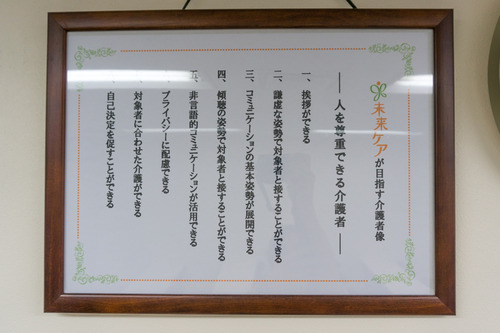 未来ケアが目指す介護者像
― 人を尊重できる介護者 ―
一、挨拶ができる
二、謙虚な姿勢で対象者と接することができる
三、コミュニケーションの基本姿勢が展開できる
四、傾聴の姿勢で対象者と接することができる
五、非言語的コミュニケーションが活用できる
プライバシーに配慮できる
対象者に合わせた介護ができる
自己決定を促すことができる